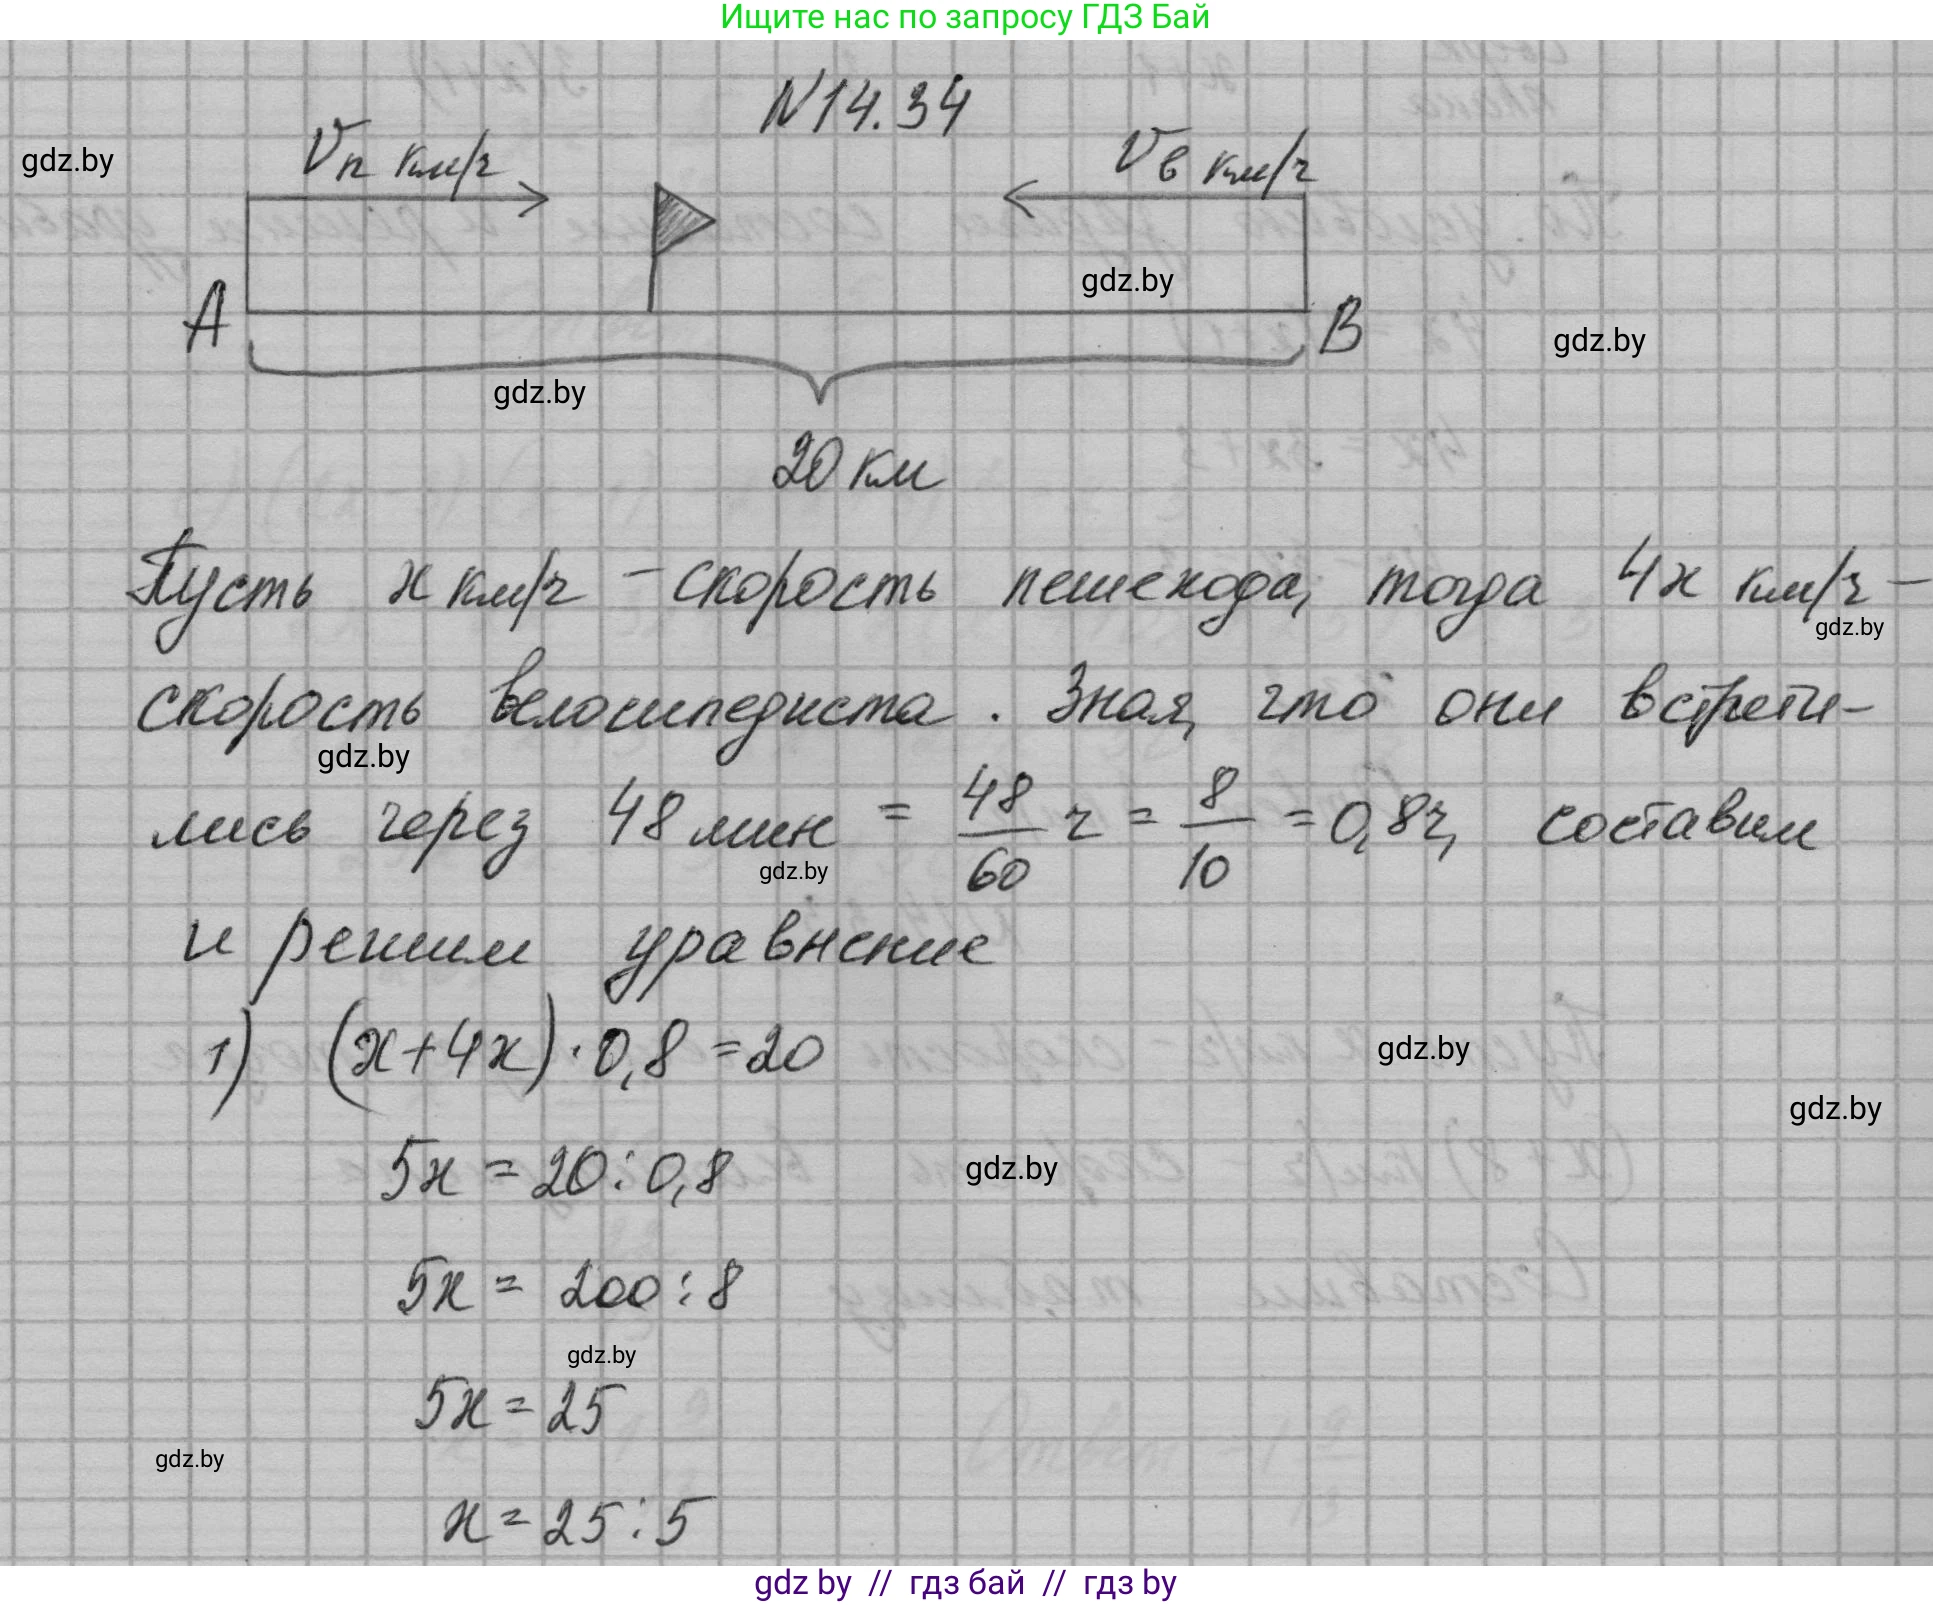 Ищите нас по запросу ГДЗ Бай
N14.34
gdz.by
Vп км/ч
Vв км/ч
gdz.by
A
B
gdz.by
gdz.by
20 км
Пусть x км/ч - скорость пешехода, тогда 4x км/ч -
gdz.by
скорость велосипедиста. Зная, что они встрети-
gdz.by
лись через 48 мин = 48/60 ч = 8/10 = 0,8ч, составим
gdz.by
и решим уравнение
1) (x+4x)·0,8=20
gdz.by
gdz.by
5x = 20:0,8
gdz.by
5x = 200:8
gdz.by
5x = 25
gdz.by
x = 25:5
gdz by // гдз бай // гдз by